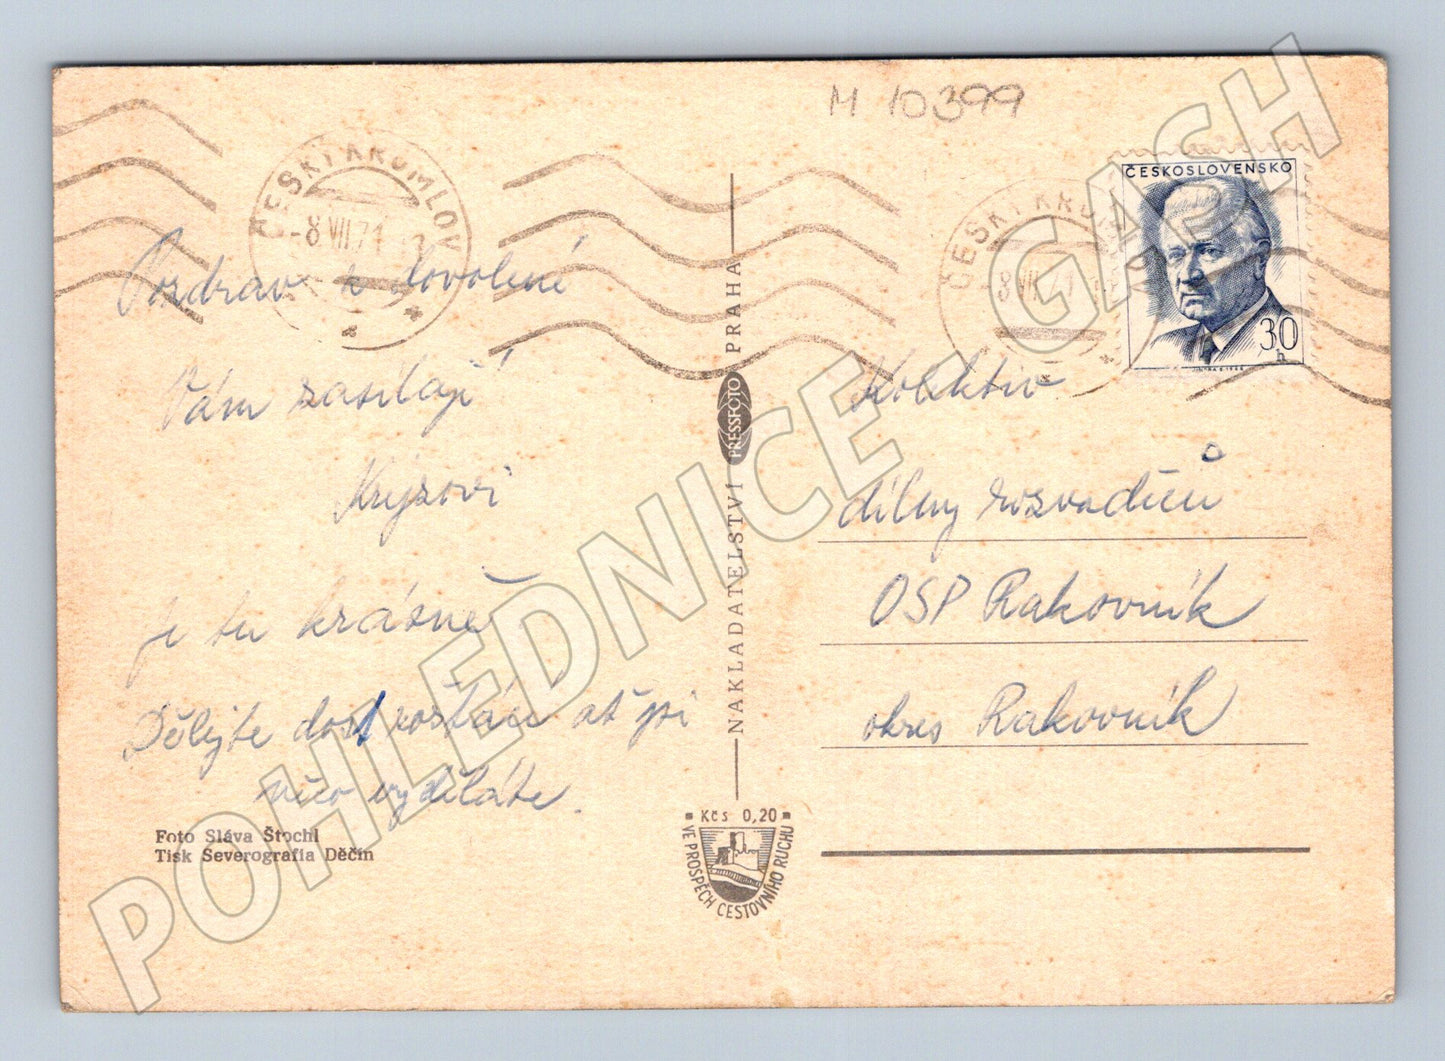 M 10399
ČESKÝ KRUMLOV
-8.VII.71-13
ČESKÝ KRUMLOV
-8.VII.71
ČESKOSLOVENSKO
30
h
Pozdrav z dovolené
Vám zasílají
Krýzovi
Je tu krásně
Dělejte dost roštáců ať si
něco vyděláte.
Foto Sláva Štochl
Tisk Severografia Děčín
NAKLADATELSTVÍ PRESSFOTO PRAHA
Kčs 0,20
VE PROSPĚCH CESTOVNÍHO RUCHU
Kolektiv
dílny rozvaděčů
OSP Rakovník
okres Rakovník
POHLEDNICE - GABSH